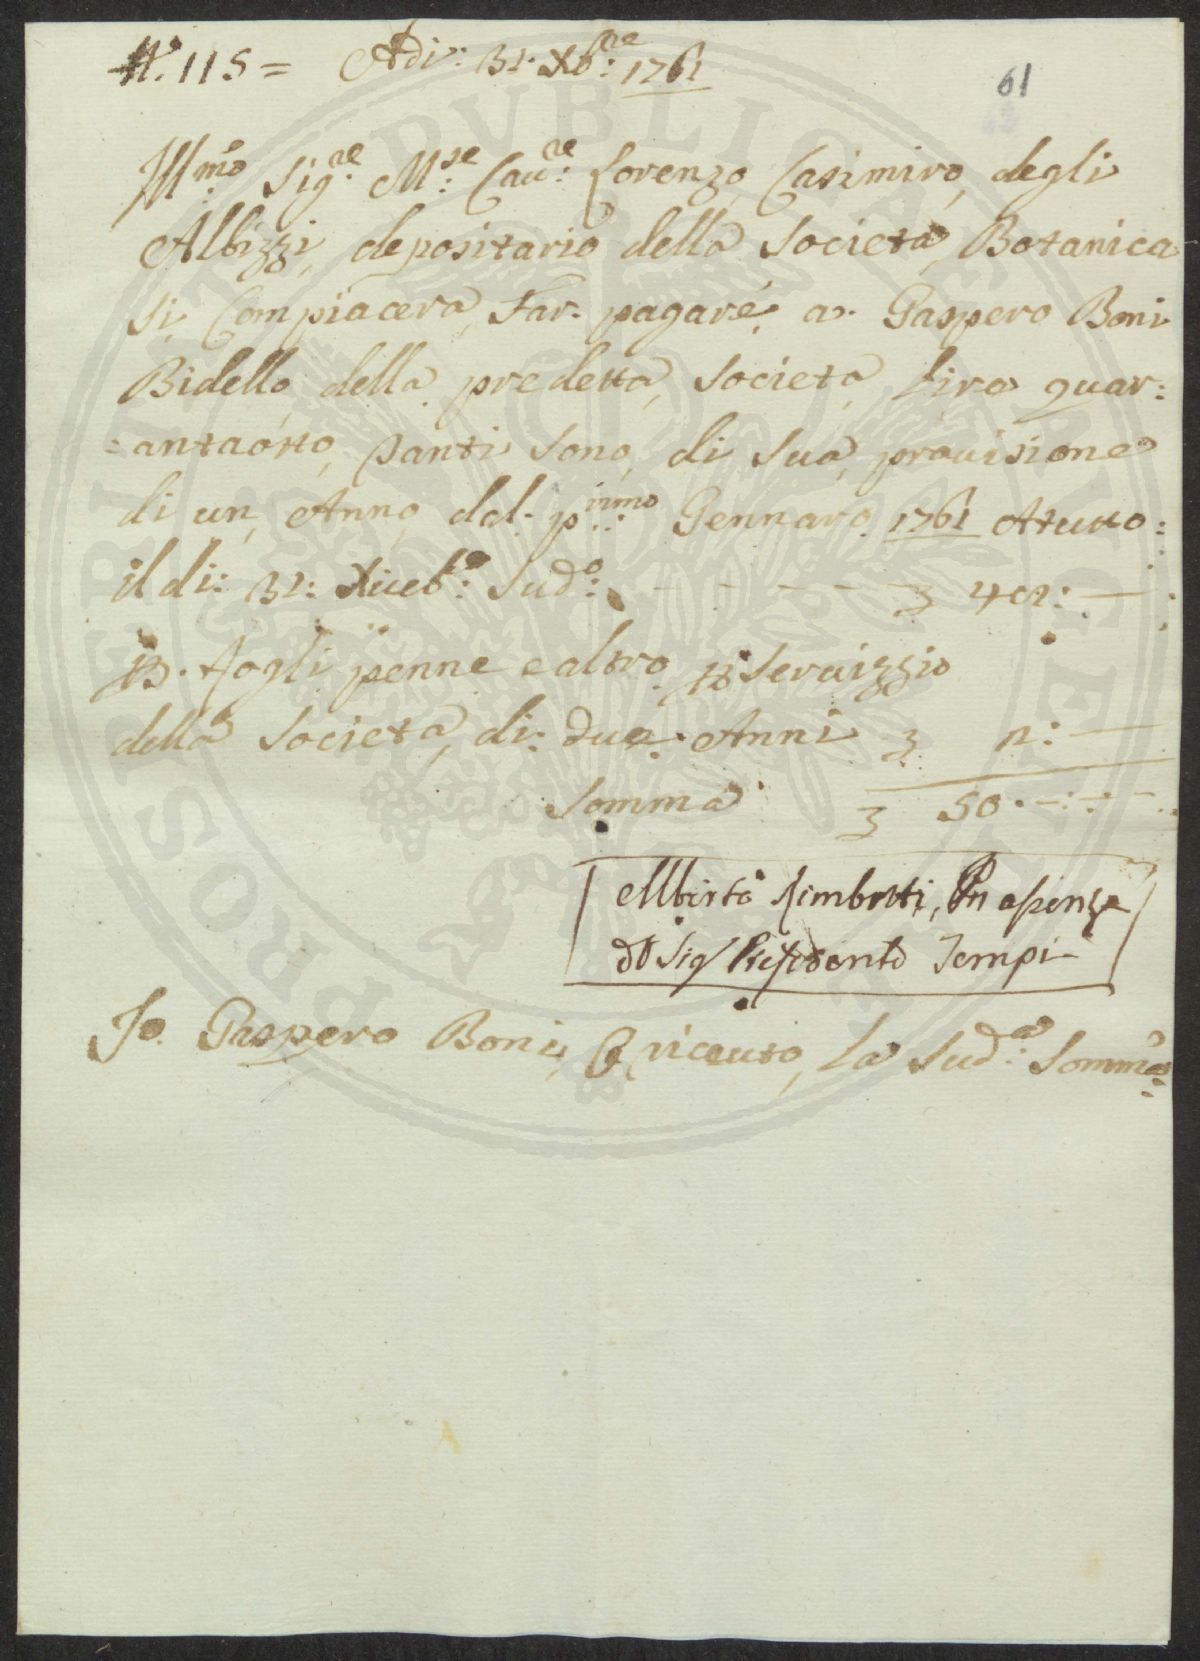 N.° 115 = Adi: 31. Xb.re 1761
61
Ill.mo Sig.re M.se Cau.re Lorenzo Casimiro degli
Albizzi depositario della Società Botanica
si Compiacera Far. pagare a. Gaspero Boni
Bidello della predetta Società lire quar:
=antaotto, tanti sono di sua prouisione
di un Anno dal. p.rimo Gennaro 1761 Atutto:
il di: 31: Xiceb.e Sud.o - - - - - 3 48: —
P. Fogli penne e altro p Seruizzio
della Società di: due Anni 3 2: —
Somma 3 50. - : - : -
Alberto Rimbotti, In asenza
del Sig Presidente Tempi
Io. Gaspero Boni, O riceuto, la Sud.a Somma
PUBLICAE
PROSPERITATI